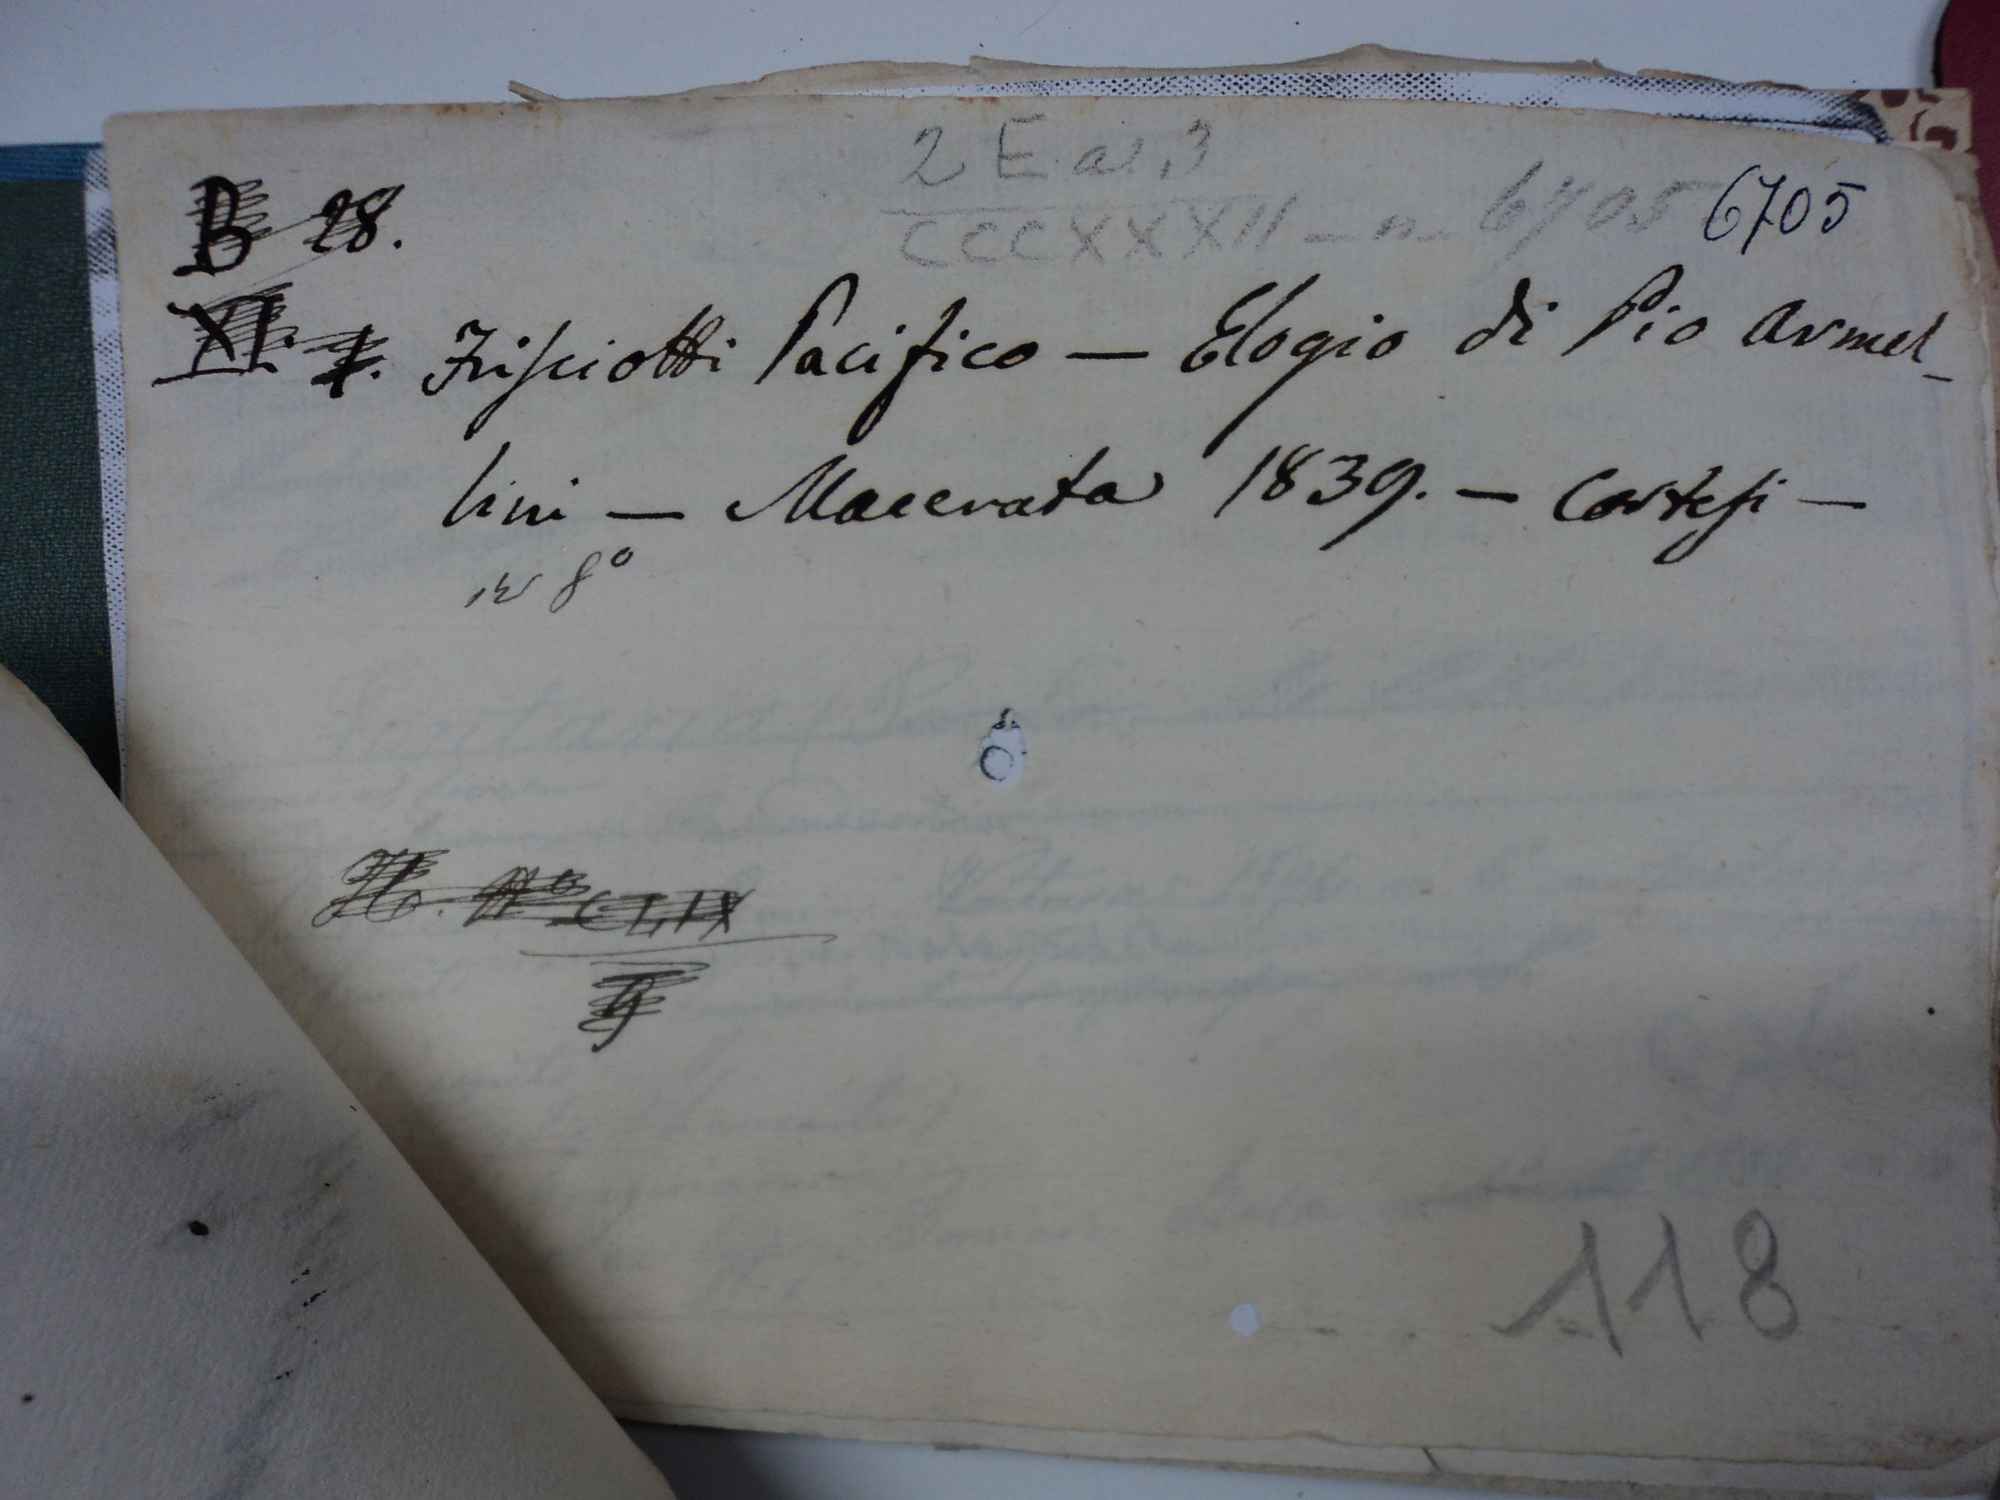 2 E ar. 3
B 28.
CCCXXXII - n. 6705
6705
XI. 1. Frisciotti Pacifico — Elogio di Pio Armel-
lini — Macerata 1839. — Cortesi —
in 8°
CLIX
9
118